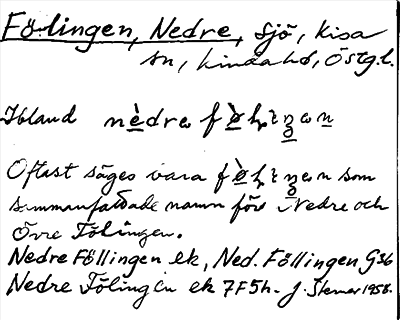 Fölingen, Nedre, sjö, Kisa
sn, Kinda hd, Östg.l.
Ibland nèdrə
Oftast säges bara som
sammanfattade namn för Nedre och
Övre Fölingen.
Nedre Föllingen ek, Ned. Föllingen G36
Nedre Fölingen ek 7F5h. J. Stenar 1958.